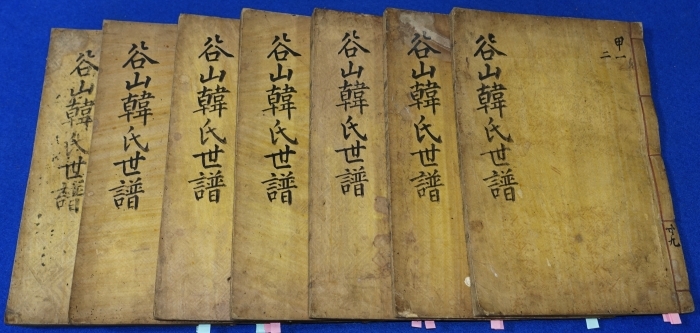 谷山韓氏世譜
谷山韓氏世譜
谷山韓氏世譜
谷山韓氏世譜
谷山韓氏世譜
谷山韓氏世譜
谷山韓氏世譜
甲一
二